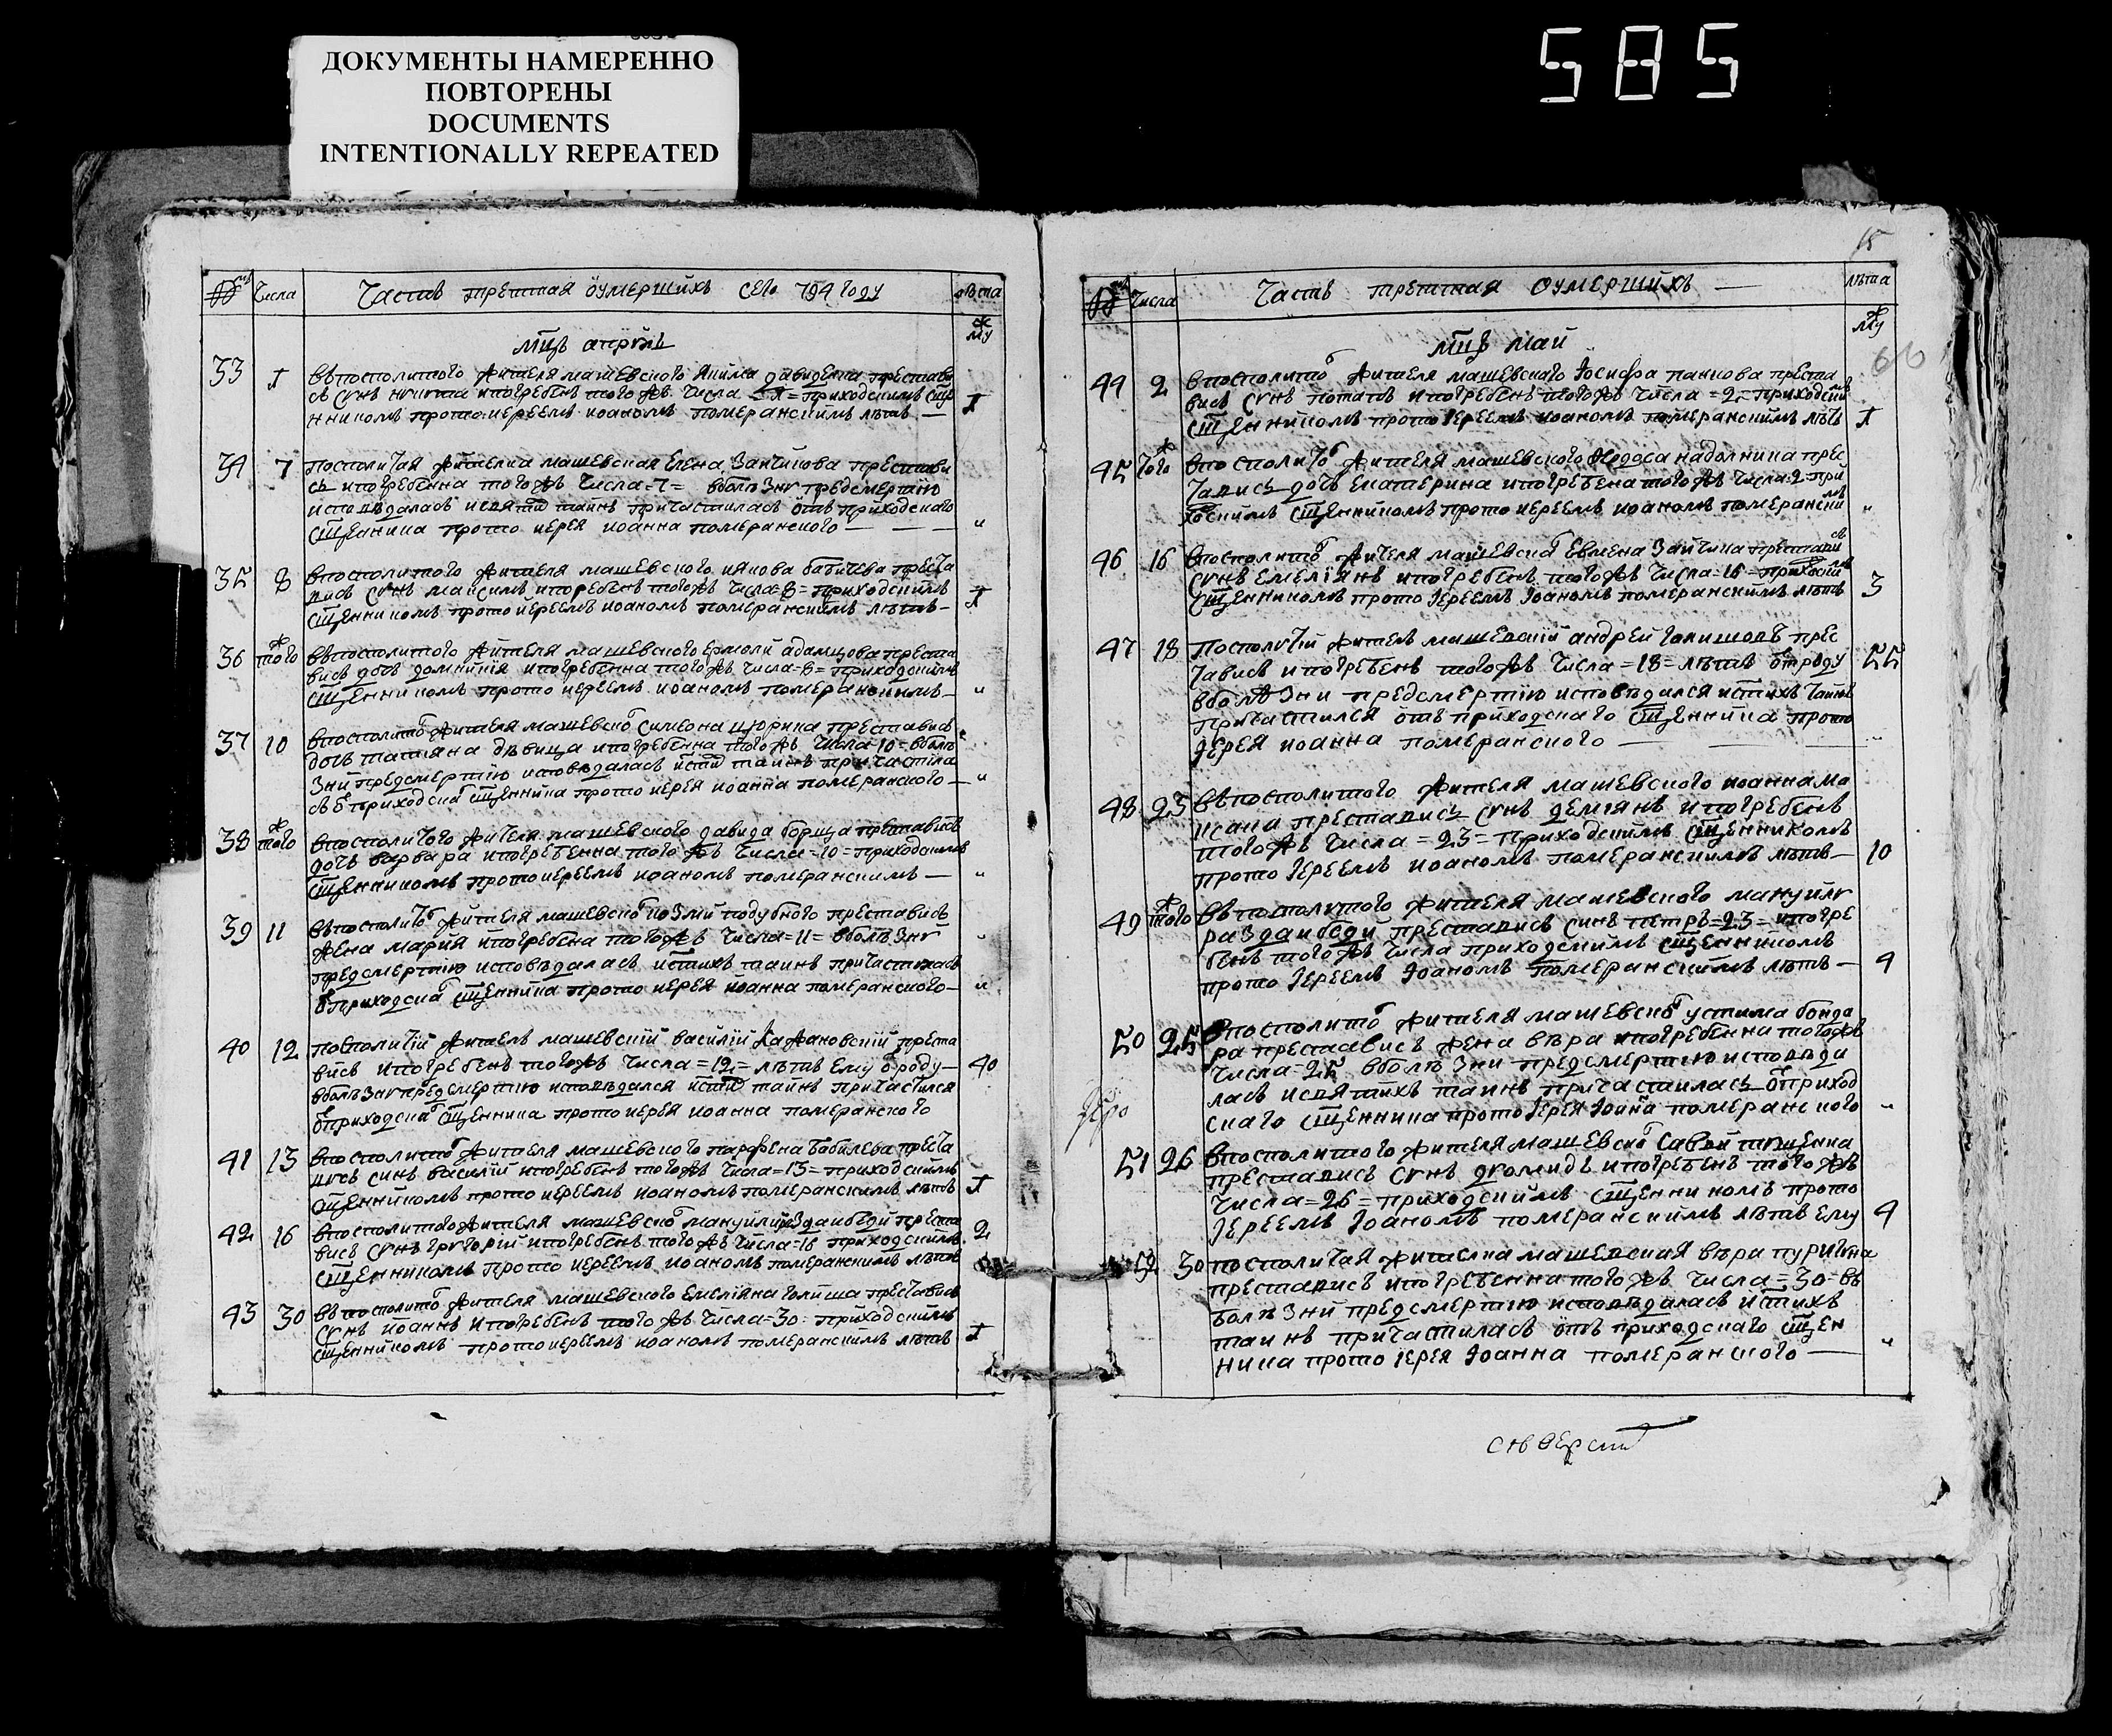 ДОКУМЕНТЫ НАМЕРЕННО
ПОВТОРЕНЫ
DOCUMENTS
INTENTIONALLY REPEATED
585
Числа Часть третая оумершихъ сего 794 году лѣта
му
мцъ априль
33 1 Въ посполитого жителя машевского Якима давиденка престави
сь сунъ никита и погребенъ того жъ числа 1 приходскимъ сще
нникомъ протоиереемъ иоаномъ померанскимъ лѣтъ — 1
34 7 посполитая жителка машевская Елена Заичикова престави
сь и погребенна того жъ числа 7 = вболѣзни предсмертїю
исповѣдалась и святих таинъ причастилась отъ приходского
сщенника прото иерея иоанна померанского — „
35 8 впосполитого жителя машевского иякова бабичева преста
вись сунъ максимъ и погребенъ тогожъ числа = 8 = приходскимъ
сщенникомъ протоиереемъ иоаномъ померанскимъ лѣтъ - 1
36 того ж въ посполитого жителя машевского Ермоли адамцова преста
вись дочь домникїя и погребенна того жъ числа = 8 = приходскимъ
сщенникомъ прото иереемъ иоаномъ померанскимъ — „
37 10 впосполито жителя машевско симеона цюрика преставись
дочь татияна дѣвица и погребенна тогожъ числа = 10 = вболѣ
зни предсмертїю исповѣдалась и стих таинъ причастила
сь от приходска сщенника прото иерея иоанна померанского — „
38 того ж впосполитого жителя машевского давида борща преставись
дочь варвара и погребенна того жъ числа = 10 = приходскимъ
сщенникомъ протоиереемъ иоаномъ померанскимъ — „
39 11 въ посполито жителя машевско козми подубного преставись
жена мария и погребена того жъ числа = 11 = вболѣзни
предсмертїю исповѣдалась и стихъ таинъ причастилась
от приходска сщенника прото иерея иоанна померанского — „
40 12 посполитїй житель машевскїй василїй хажановскїй преста
вись и погребенъ тогожъ числа = 12 = лѣтъ ему отроду — 40
вболѣзни предсмертїю исповѣдался и стих таинъ причастился
от приходска сщенника прото иерея иоанна померанского
41 13 впосполито жителя машевского парфена бабилева преста
вись синъ василїй и погребенъ того жъ числа = 13 = приходскимъ
сщенникомъ прото иереемъ иоаномъ померанскимъ лѣтъ 1
42 16 впосполитого жителя машевско мануйли раздаибеди преста
вись сунъ григорий и погребенъ того жъ числа = 16 приходскимъ 2
сщенникомъ прото иереемъ иоаномъ померанскимъ лѣтъ
43 30 въ посполито жителя машевского Емелїяна голиша преставись
сунъ иоаннъ и погребенъ того жъ числа = 30 = приходскимъ
сщенникомъ протоиереемъ иоаномъ померанскимъ лѣтъ 1
15
Числа Часть третая оумершихъ — лѣта
му
60
мцъ май
44 2 впосполито жителя машевского Іосифа панкова преста
вись сунъ потапъ и погребенъ того жъ числа = 2 = приходским
сщенникомъ прото Іереемъ иоаномъ померанскимъ лѣтъ 1
45 того ж впосполито жителя машевского Федоса надолника прес
тавись дочь екатерина и погребена того жъ числа = 2 при
ходскимъ сщенникомъ прото иереемъ иоаномъ померански мъ „
46 16 впосполито жителя машевско Евмена Заичика преставись
сунъ Емелїянъ и погребенъ того жъ числа = 16 = приходским
сщенникомъ прото Іереемъ Іоаномъ померанскимъ лѣтъ 3
47 18 Посполитїй житель машевскїй андрей гонишовъ прес
тавись и погребенъ тогожъ числа = 18 = лѣтъ отроду 55
вболѣзни предсмертїю исповѣдался и стихъ таинъ
причастился отъ приходскаго сщенника прото
иерея иоанна померанского — „
48 23 Въ посполитого жителя машевского иоанна мо
исана преставись сунъ демїянъ и погребенъ
того жъ числа = 23 = приходскимъ сщенникомъ
прото Іереемъ иоаномъ померанскимъ лѣтъ — 10
49 того ж въ посполитого жителя машевского мануйли
раздаибеди преставись синъ петръ = 23 = и погре
бенъ того жъ числа приходскимъ сщенникомъ
прото Іереемъ Іоаномъ померанскимъ лѣтъ — 4
50 25 Впосполито жителя машевско устима бонда
ра преставись жена вѣра и погребенна того жъ
числа = 25 вболѣзни предсмертїю исповѣда
лась и святихъ таинъ причастилась от приход
скаго сщенника прото Іерея Іоанна померанского „
51 26 впосполитого жителя машевско Савви тищенка
преставись сунъ диомидъ и погребенъ того жъ
числа = 26 = приходскимъ сщенникомъ прото
Іереемъ Іоаномъ померанскимъ лѣтъ ему 4
52 30 посполитая жителка машевская вѣра пуригина
преставись и погребенна того жъ числа = 30 = въ
болѣзни предсмертїю исповѣдалась и стихъ
таинъ причастилась отъ приходскаго сщен
ника прото Іерея Іоанна померанского — „